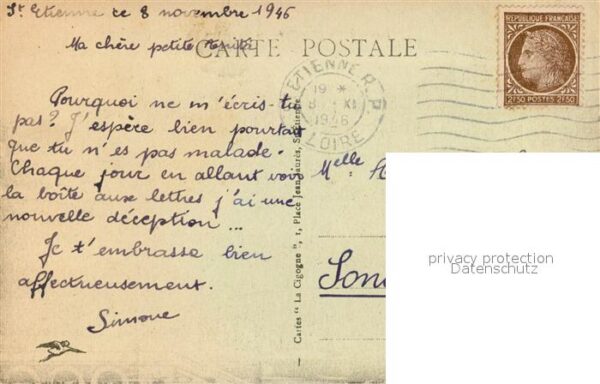 St Etienne ce 8 novembre 1946
Ma chère petite
CARTE POSTALE
Pourquoi ne m'écris-tu
pas? J'espère bien pourtant
que tu n'es pas malade.
Chaque jour en allant voir
la boîte aux lettres j'ai une
nouvelle déception ...
Je t'embrasse bien
affectueusement.
Simone
Cartes "La Cigogne", 1, Place Jean-Jaurès, St-Etienne
ETIENNE R.P.
19 *
8 XI
1946
LOIRE
REPUBLIQUE FRANÇAISE
2F50 POSTES 2F50
Melle
privacy protection
Datenschutz